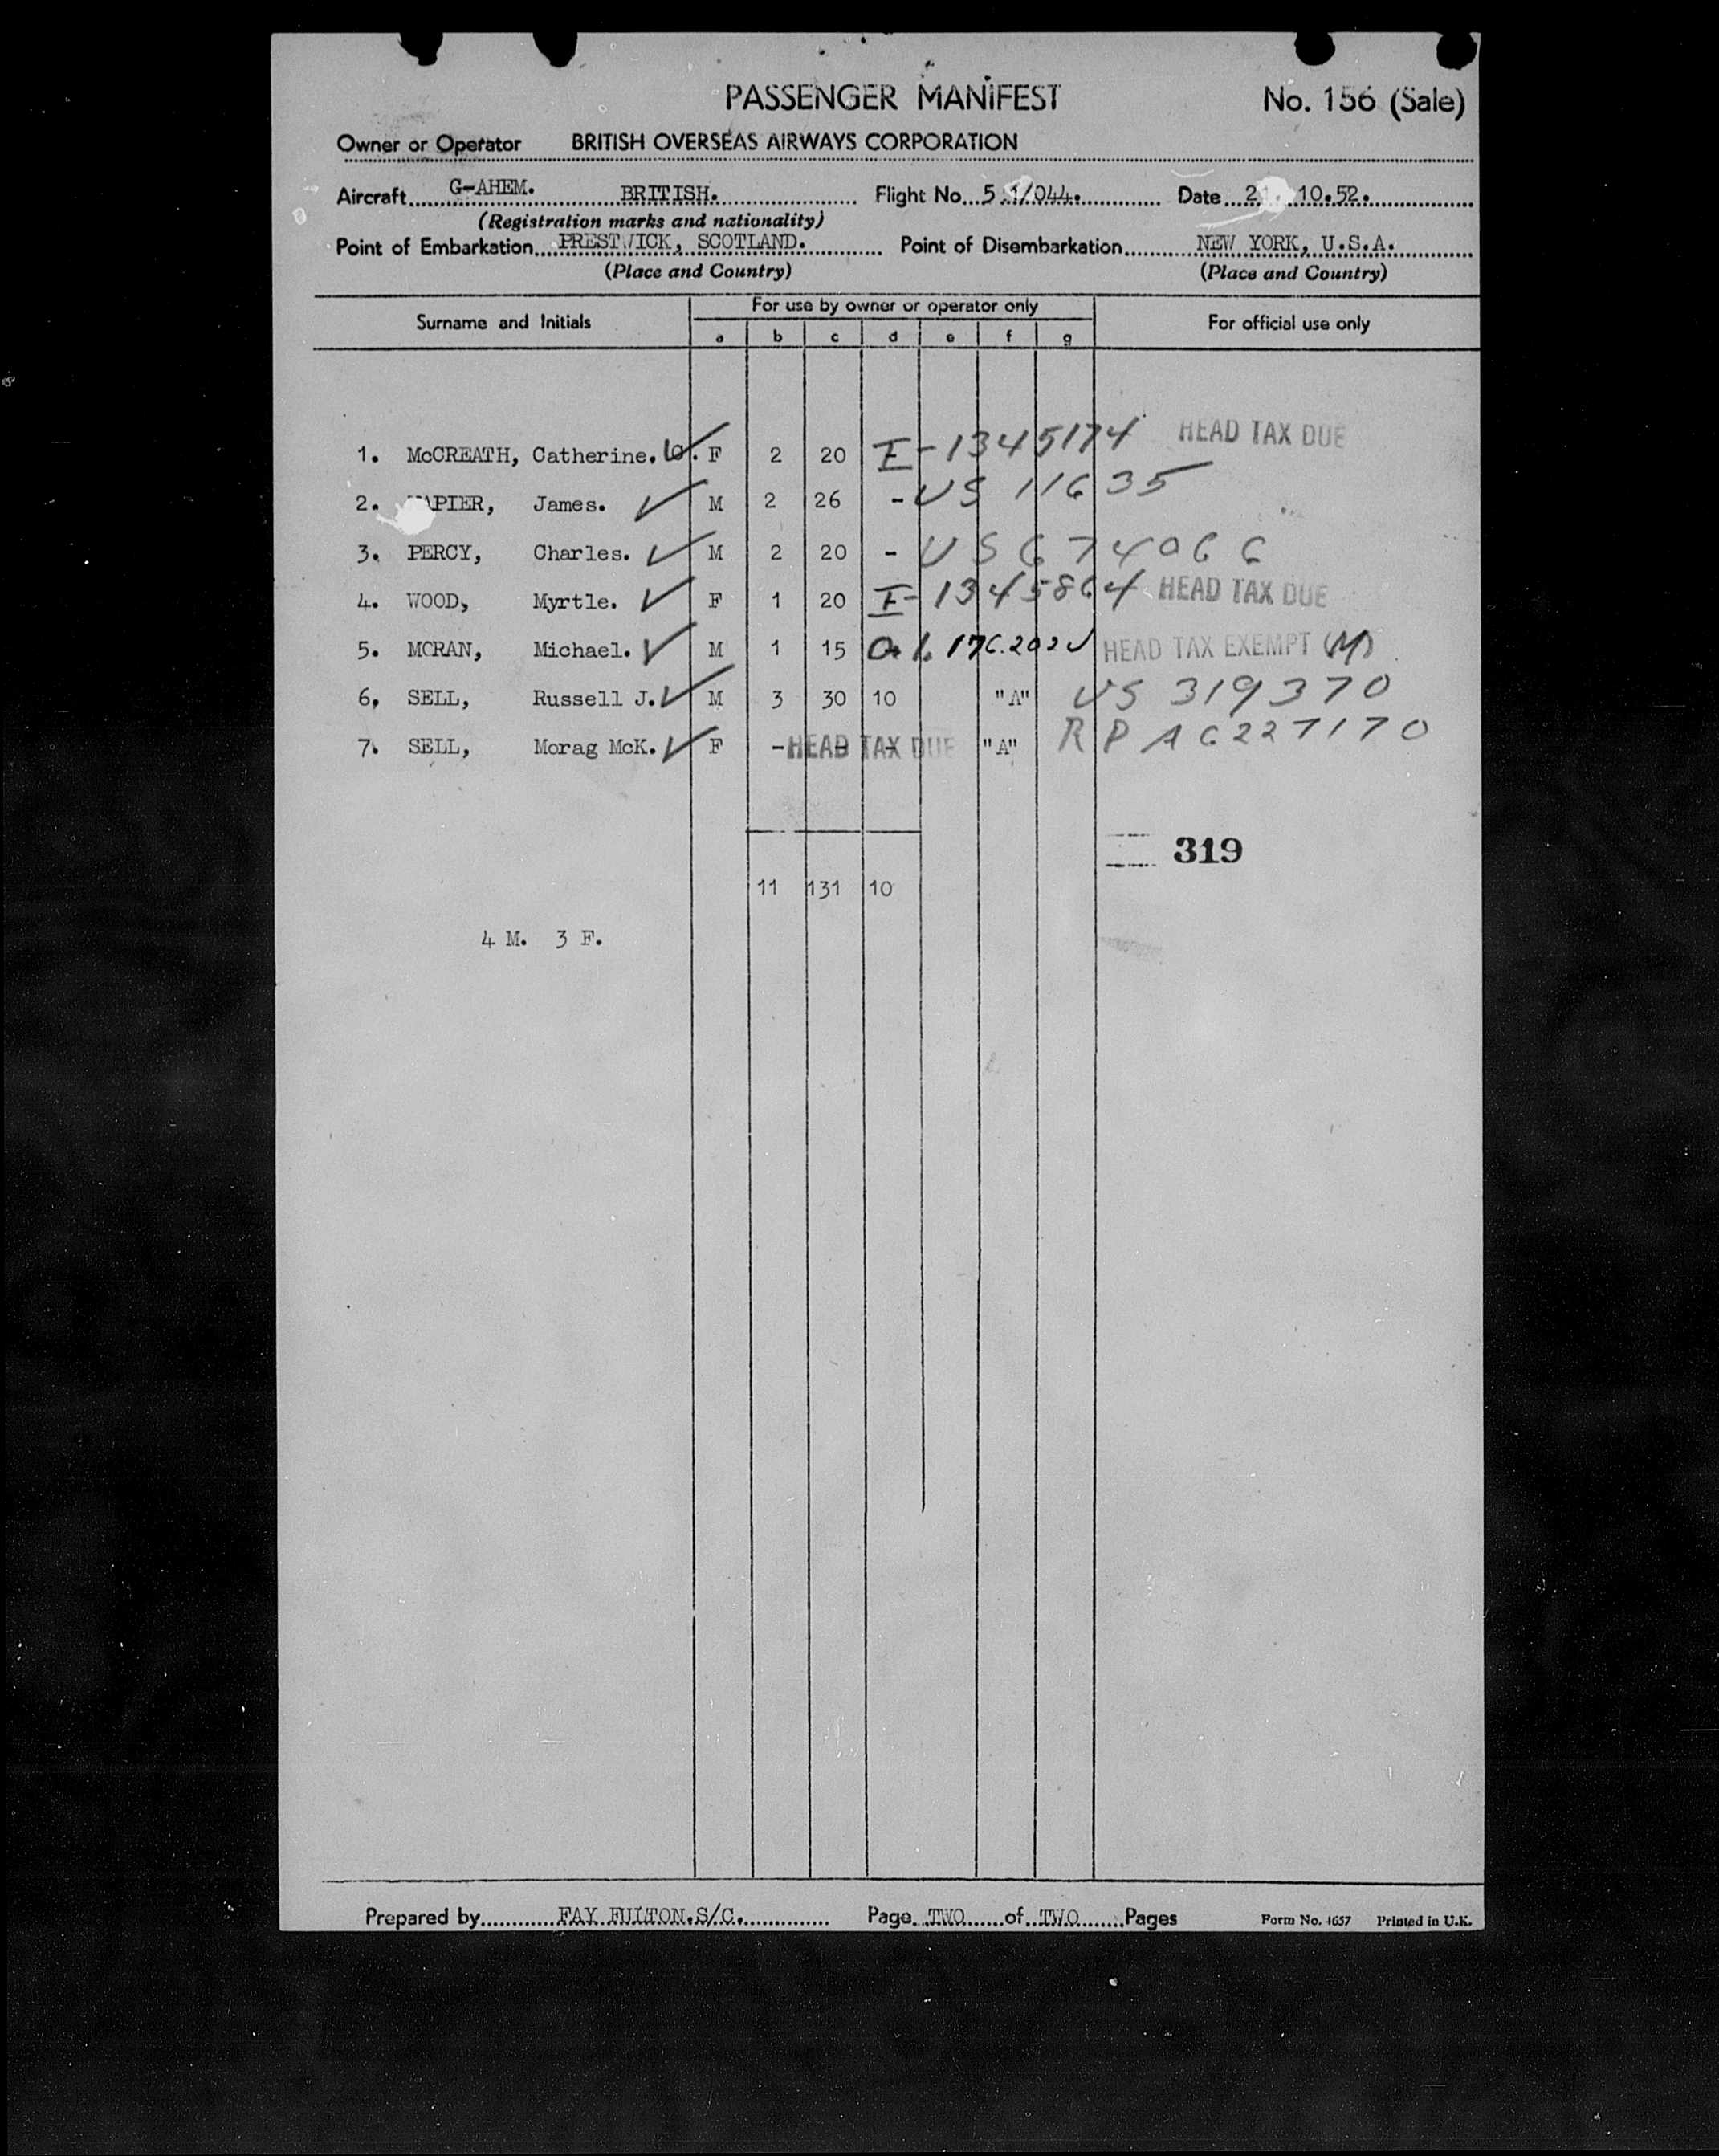 PASSENGER MANIFEST No. 156 (Sale)
Owner or Operator BRITISH OVERSEAS AIRWAYS CORPORATION
Aircraft G-AHEM. BRITISH. Flight No. 5 1/044. Date 21. 10.52.
(Registration marks and nationality)
Point of Embarkation PRESTWICK, SCOTLAND. Point of Disembarkation NEW YORK, U.S.A.
(Place and Country) (Place and Country)
Surname and Initials For use by owner or operator only For official use only
a b c d e f g
1. McCREATH, Catherine. F 2 20 I-1345174 HEAD TAX DUE
2. APIER, James. M 2 26 - US 11635
3. PERCY, Charles. M 2 20 - US 674066
4. WOOD, Myrtle. F 1 20 I-1345864 HEAD TAX DUE
5. MORAN, Michael. M 1 15 176.202 HEAD TAX EXEMPT (M)
6, SELL, Russell J. M 3 30 10 "A" US 319370
7. SELL, Morag McK. F - HEAD TAX DUE "A" RP A6227170
319
11 131 10
4 M. 3 F.
Prepared by FAY FULTON.S/C. Page TWO of TWO Pages Form No. 4657 Printed in U.K.